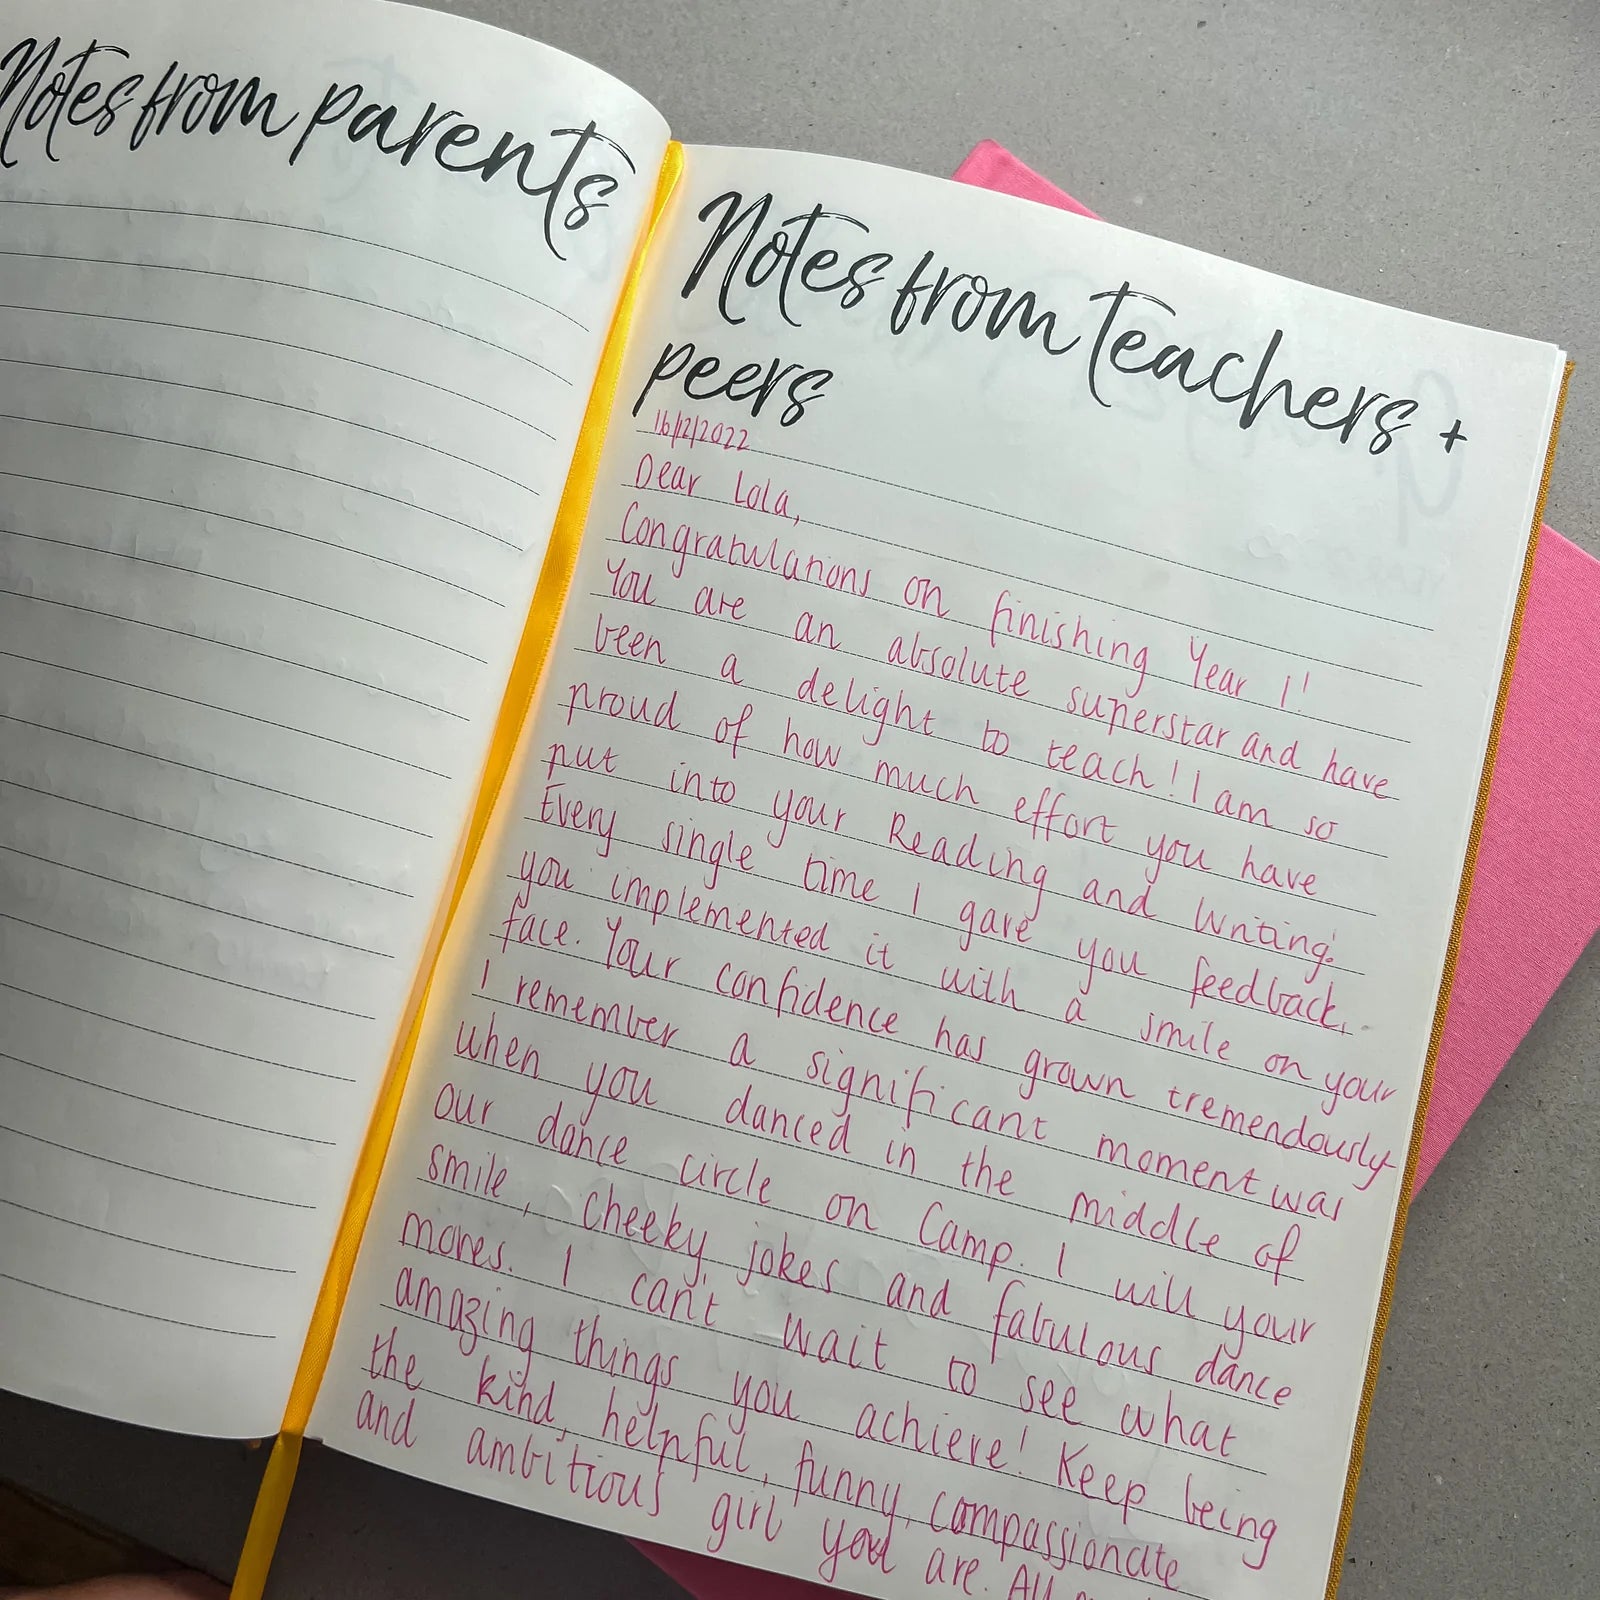 Notes from parents
Notes from teachers +
peers
16/12/2022
Dear Lola,
Congratulations on finishing Year 1!
You are an absolute superstar and have
been a delight to teach! I am so
proud of how much effort you have
put into your Reading and Writing.
Every single time I gave you feedback,
you implemented it with a smile on your
face. Your confidence has grown tremendously
I remember a significant moment was
when you danced in the middle of
our dance circle on Camp. I will your
smile, cheeky jokes and fabulous dance
moves. I can't wait to see what
amazing things you achieve! Keep being
the kind, helpful, funny, compassionate
and ambitious girl you are. All